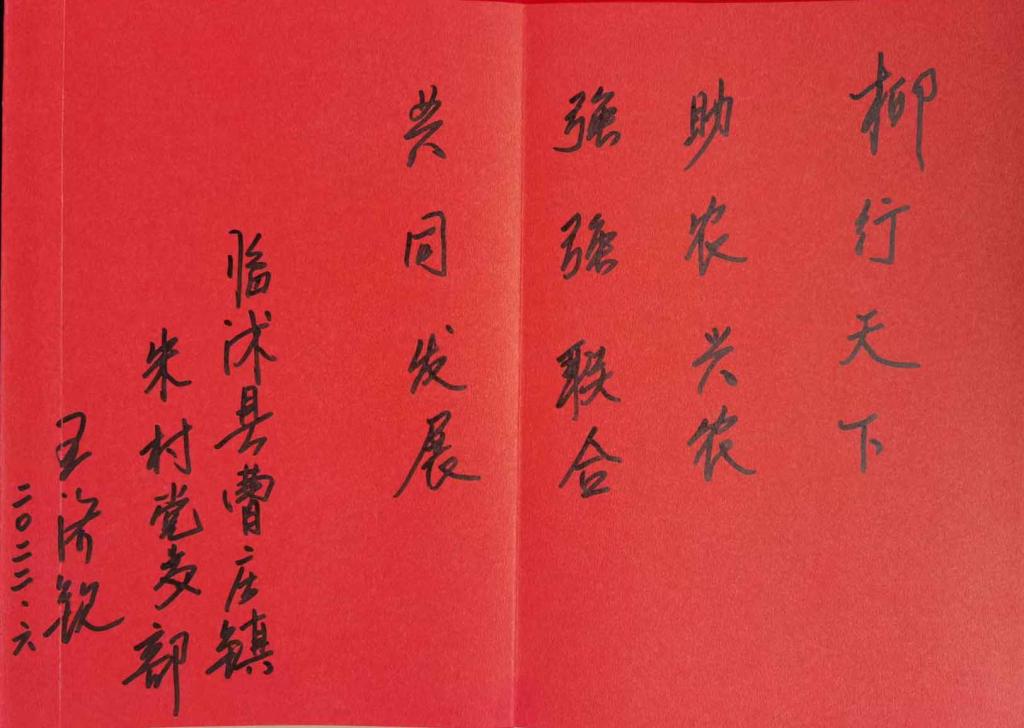 柳行天下
助农兴农
强强联合
共同发展
临沭县曹庄镇
朱村党支部
王济钦
二〇二二.六